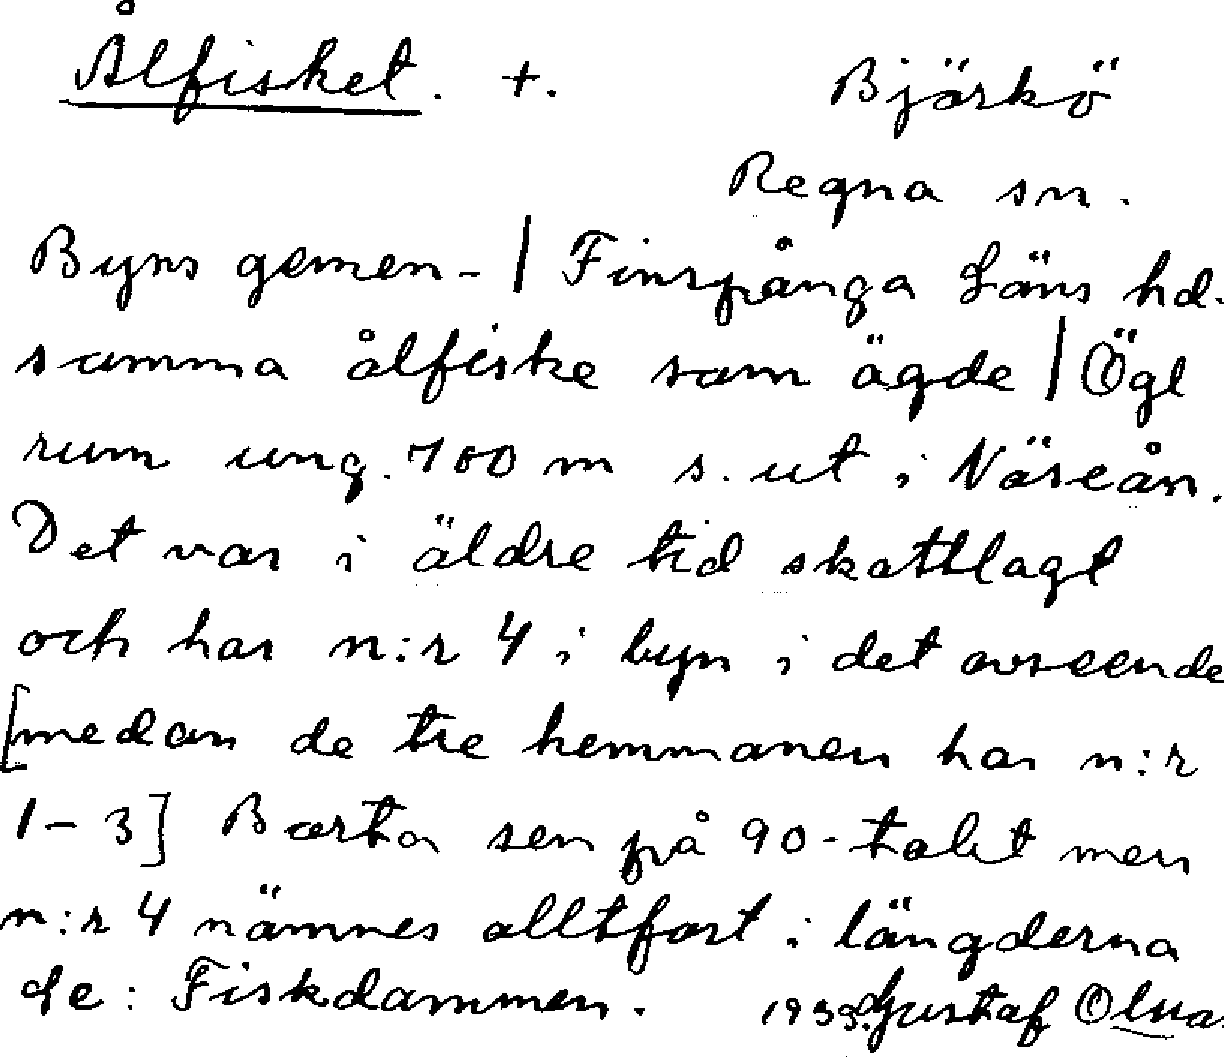 Ålfisket. +. Björkö
Regna sn.
Byns gemen- | Finspånga Läns hd.
samma ålfiske som ägde | Ögl
rum ung. 700 m s. ut i Näseån.
Det var i äldre tid skattlagt
och har n:r 4 i byn i det avseende
[medan de tre hemmanen har n:r
1-3] Borta sen på 90-talet men
n:r 4 nämnes alltfort i längderna
de: Fiskdammen. Gustaf Olua